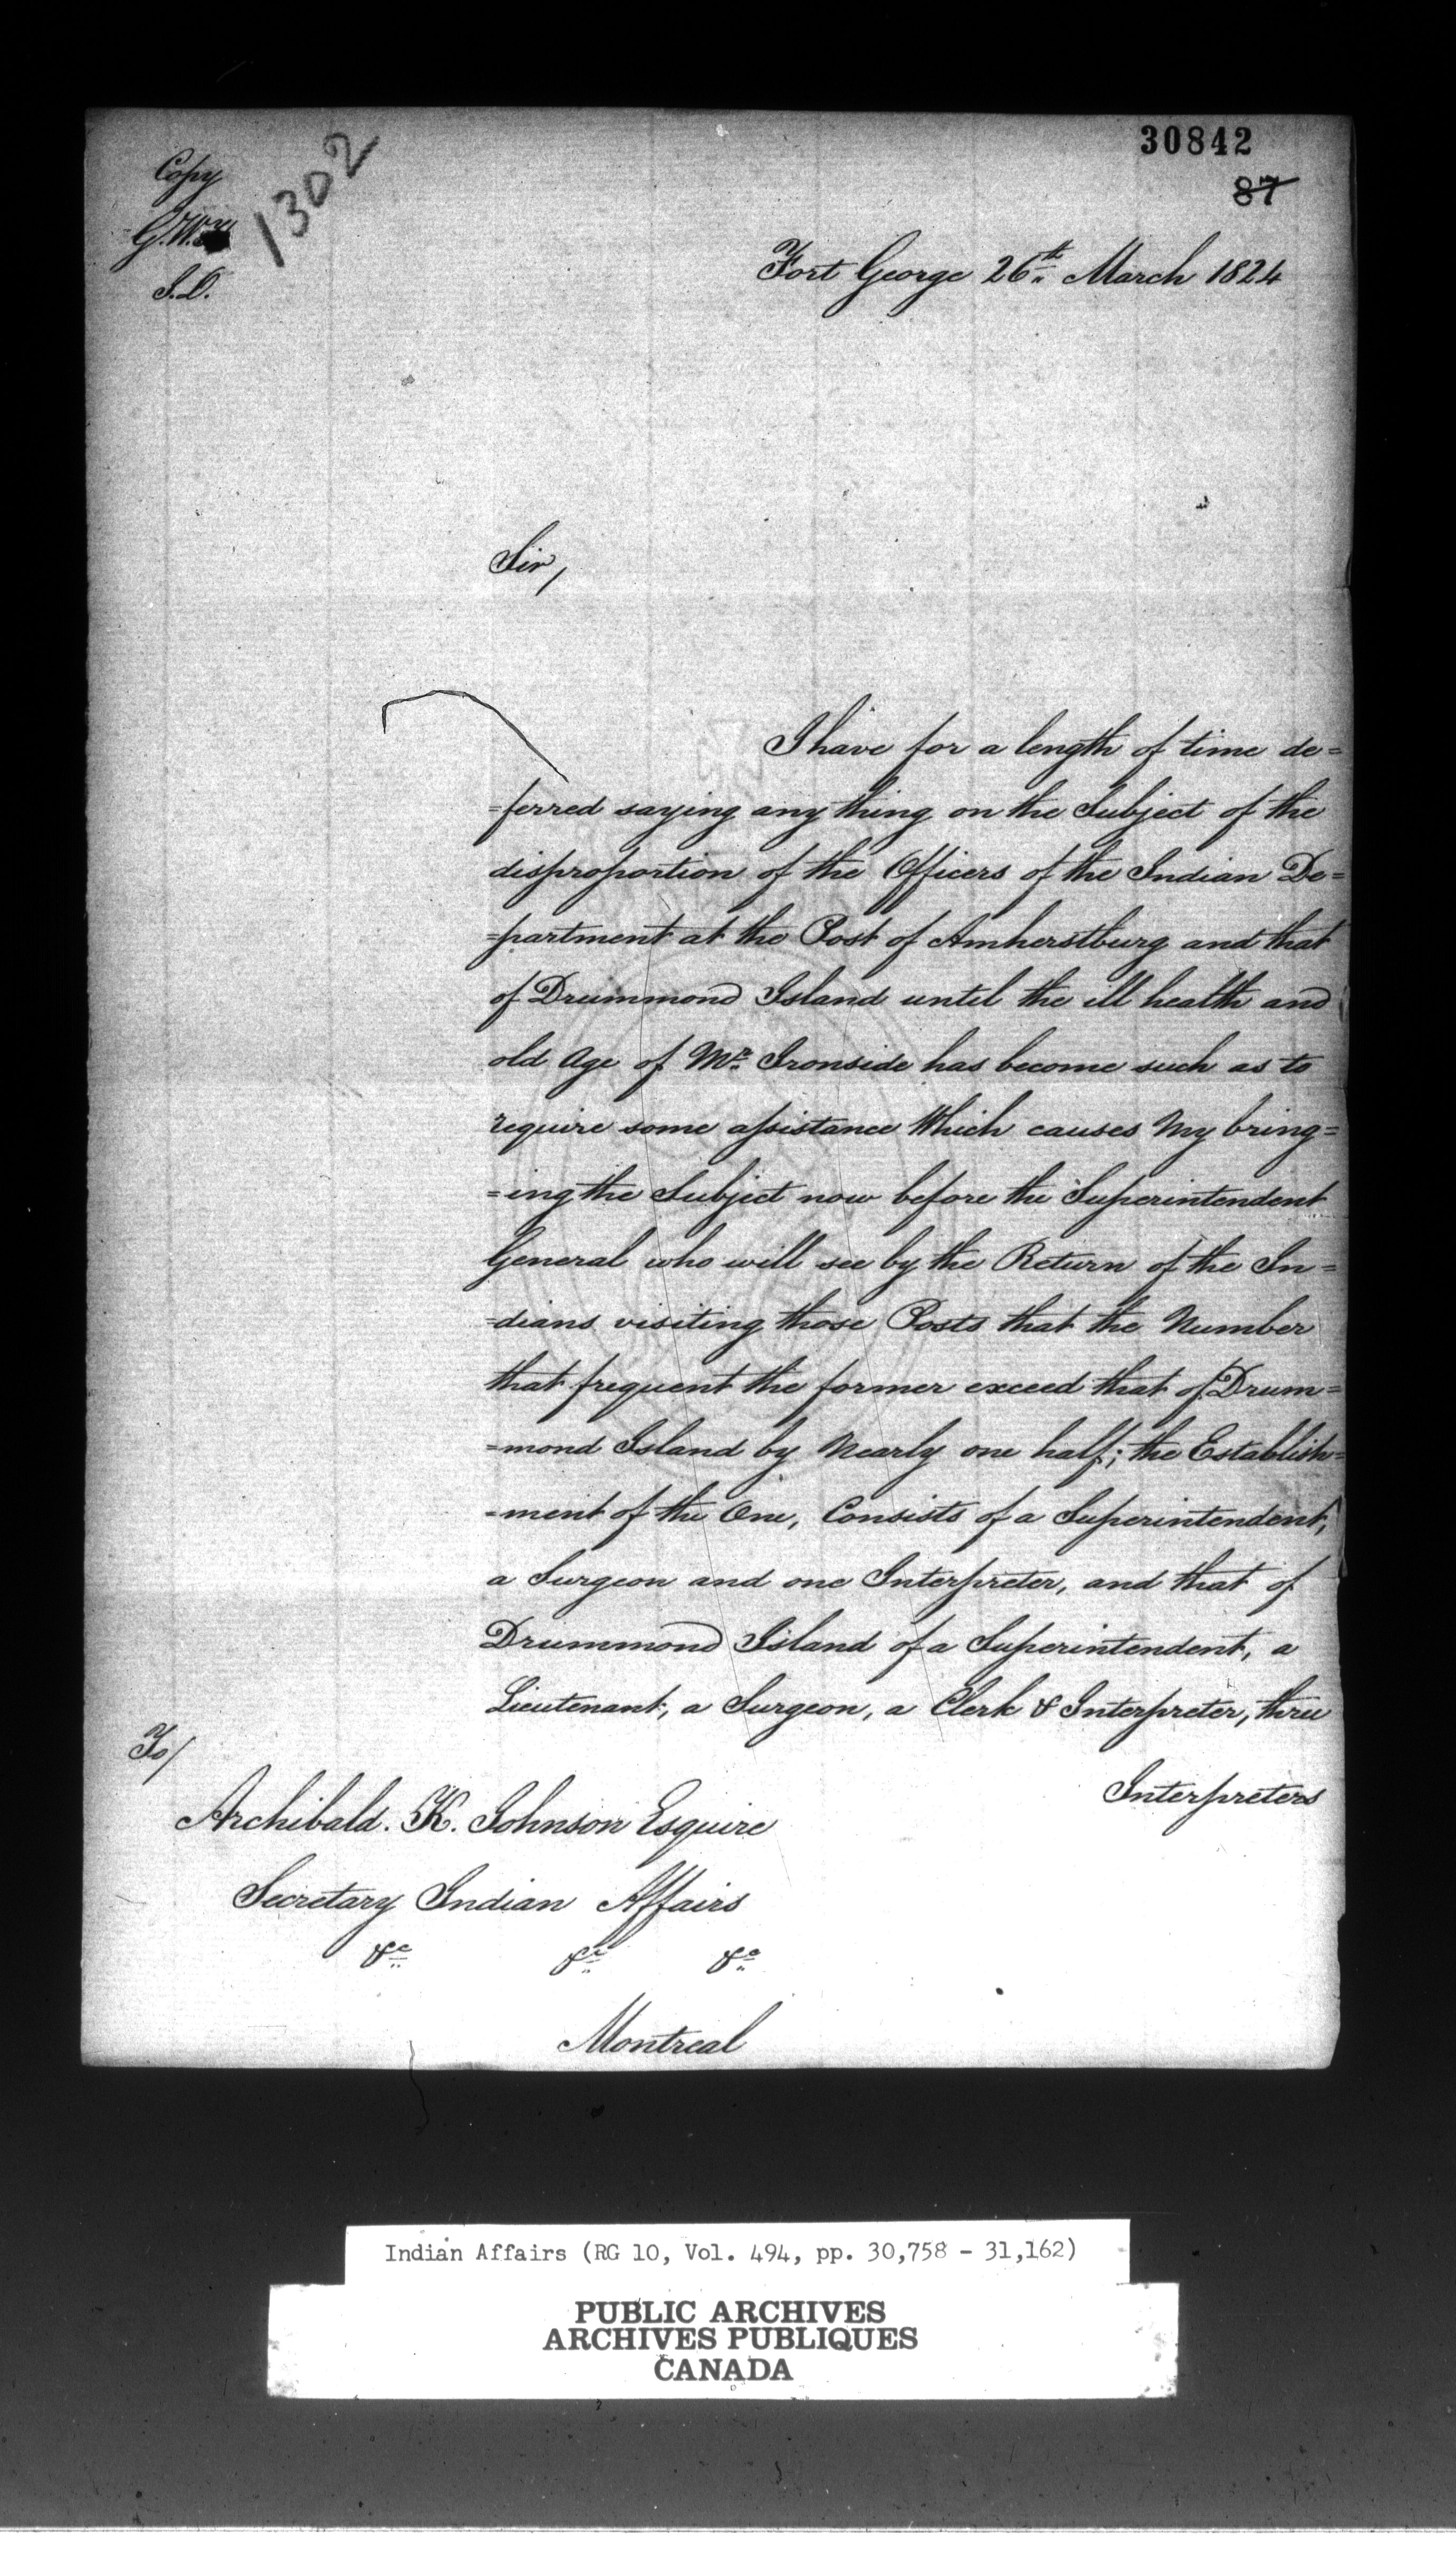 30842
87
Copy
1302
S.D.
Fort George 26th March 1824
Sir,
I have for a length of time de=
=ferred saying any thing on the Subject of the
disproportion of the Officers of the Indian De=
=partment at the Post of Amherstburg and that
of Drummond Island until the ill health and
old Age of Mr. Ironside has become such as to
require some assistance Which causes My bring=
=ing the Subject now before the Superintendent
General who will see by the Return of the In=
=dians visiting those Posts that the Number
that frequent the former exceed that of Drum=
=mond Island by Nearly one half; the Establish=
=ment of the One, Consists of a Superintendent,
a Surgeon and one Interpreter, and that of
Drummond Island of a Superintendent, a
Lieutenant, a Surgeon, a Clerk & Interpreter, three
Interpreters
To/
Archibald. K. Johnson Esquire
Secretary Indian Affairs
&c &c &c
Montreal
Indian Affairs (RG 10, Vol. 494, pp. 30,758 - 31,162)
PUBLIC ARCHIVES
ARCHIVES PUBLIQUES
CANADA